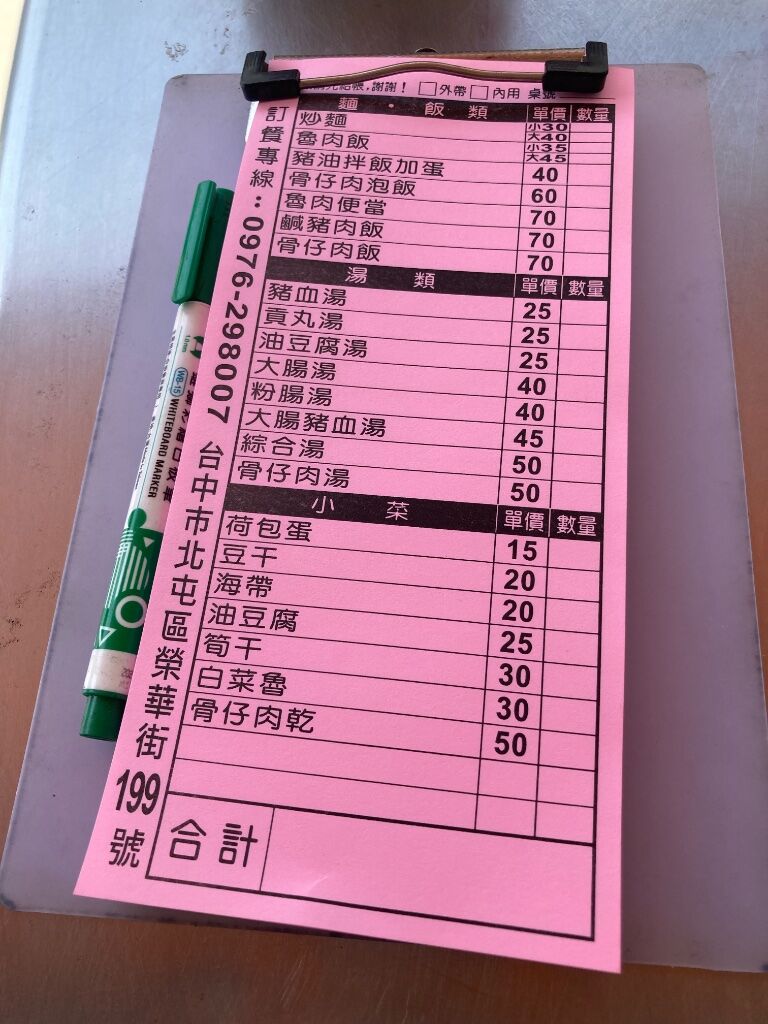 請先結帳,謝謝! □外帶 □內用 桌號
麵・飯類 單價 數量
炒麵 小30 大40
魯肉飯 小35 大45
豬油拌飯加蛋 40
骨仔肉泡飯 60
魯肉便當 70
鹹豬肉飯 70
骨仔肉飯 70
湯類 單價 數量
豬血湯 25
貢丸湯 25
油豆腐湯 25
大腸湯 40
粉腸湯 40
大腸豬血湯 45
綜合湯 50
骨仔肉湯 50
小菜 單價 數量
荷包蛋 15
豆干 20
海帶 20
油豆腐 25
筍干 30
白菜魯 30
骨仔肉乾 50
合計
訂餐專線:0976-298007 台中市北屯區榮華街199號
WB-15 WHITEBOARD MARKER